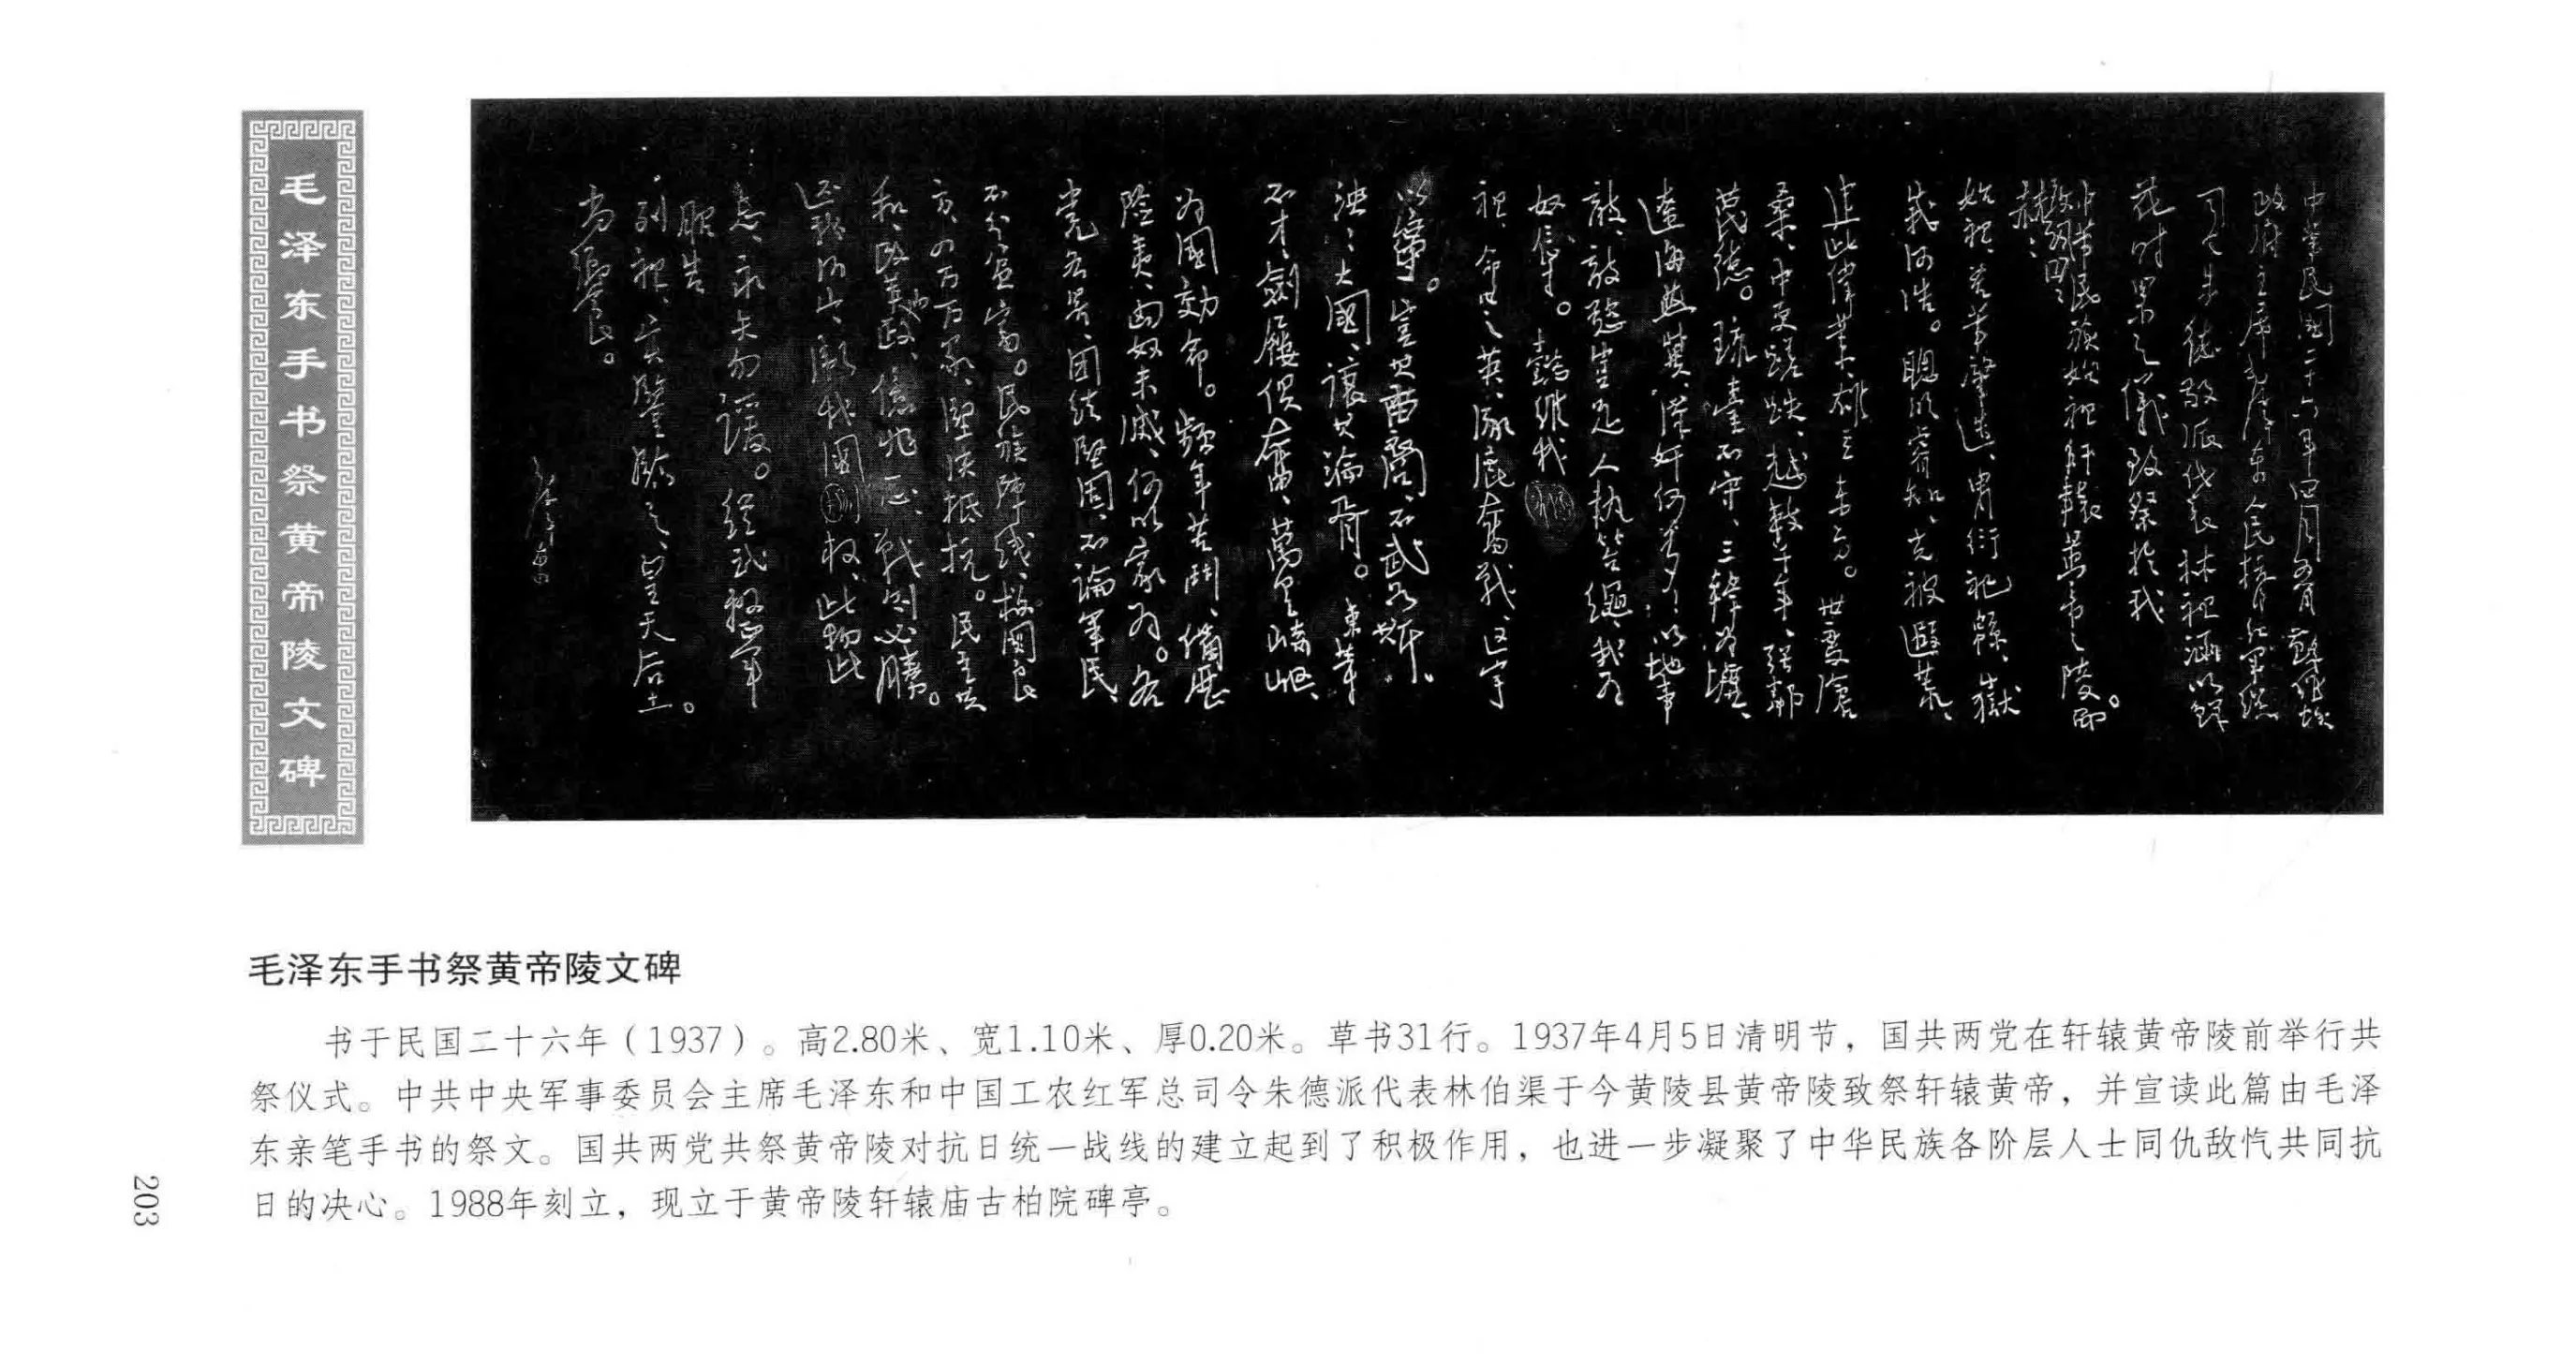 毛泽东手书祭黄帝陵文碑
中華民國二十六年四月五日,蘇維埃
政府主席毛澤東人民抗日紅軍總
司令朱德敬派代表林祖涵,以鮮
花时果之儀致祭於我
中華民族始祖軒轅黃帝之陵。而
致詞曰:
赫:
始祖、吾華肇造、胄衍祀緜、嶽
峨河浩。聰明睿知、光被遐荒、
建此偉業、雄立東方。世變滄
桑、中更蹉跌、越數千年、强鄰
蔑德。琉臺不守、三韓为墟、
遼海燕冀、漢奸何多!以地事
敵、敵欲豈足、人执笞繩、我为
奴辱。懿维我
祖、命世之英、涿鹿奮戰、区宇
以寧。豈其苗裔、不武如斯、
泱:大國、讓其淪胥。東等
不才、劍屨俱奮、萬里崎嶇、
为國効命。頻年苦鬥、備歷
險夷、匈奴未滅、何以家为。各
党各界、团结坚固、不論軍民、
不分貧富。民族陣线、救國良
方、四万万众、坚决抵抗。民主共
和、改革内政、億兆一心、戰则必勝。
还我河山、衛我國权、此物此
志、永矢勿諼。經武整軍
昭告
列祖、实鑒臨之、皇天后土。
尚饗。
毛澤東
毛泽东手书祭黄帝陵文碑
书于民国二十六年(1937)。高2.80米、宽1.10米、厚0.20米。草书31行。1937年4月5日清明节,国共两党在轩辕黄帝陵前举行共
祭仪式。中共中央军事委员会主席毛泽东和中国工农红军总司令朱德派代表林伯渠于今黄陵县黄帝陵致祭轩辕黄帝,并宣读此篇由毛泽
东亲笔手书的祭文。国共两党共祭黄帝陵对抗日统一战线的建立起到了积极作用,也进一步凝聚了中华民族各阶层人士同仇敌忾共同抗
日的决心。1988年刻立,现立于黄帝陵轩辕庙古柏院碑亭。
203